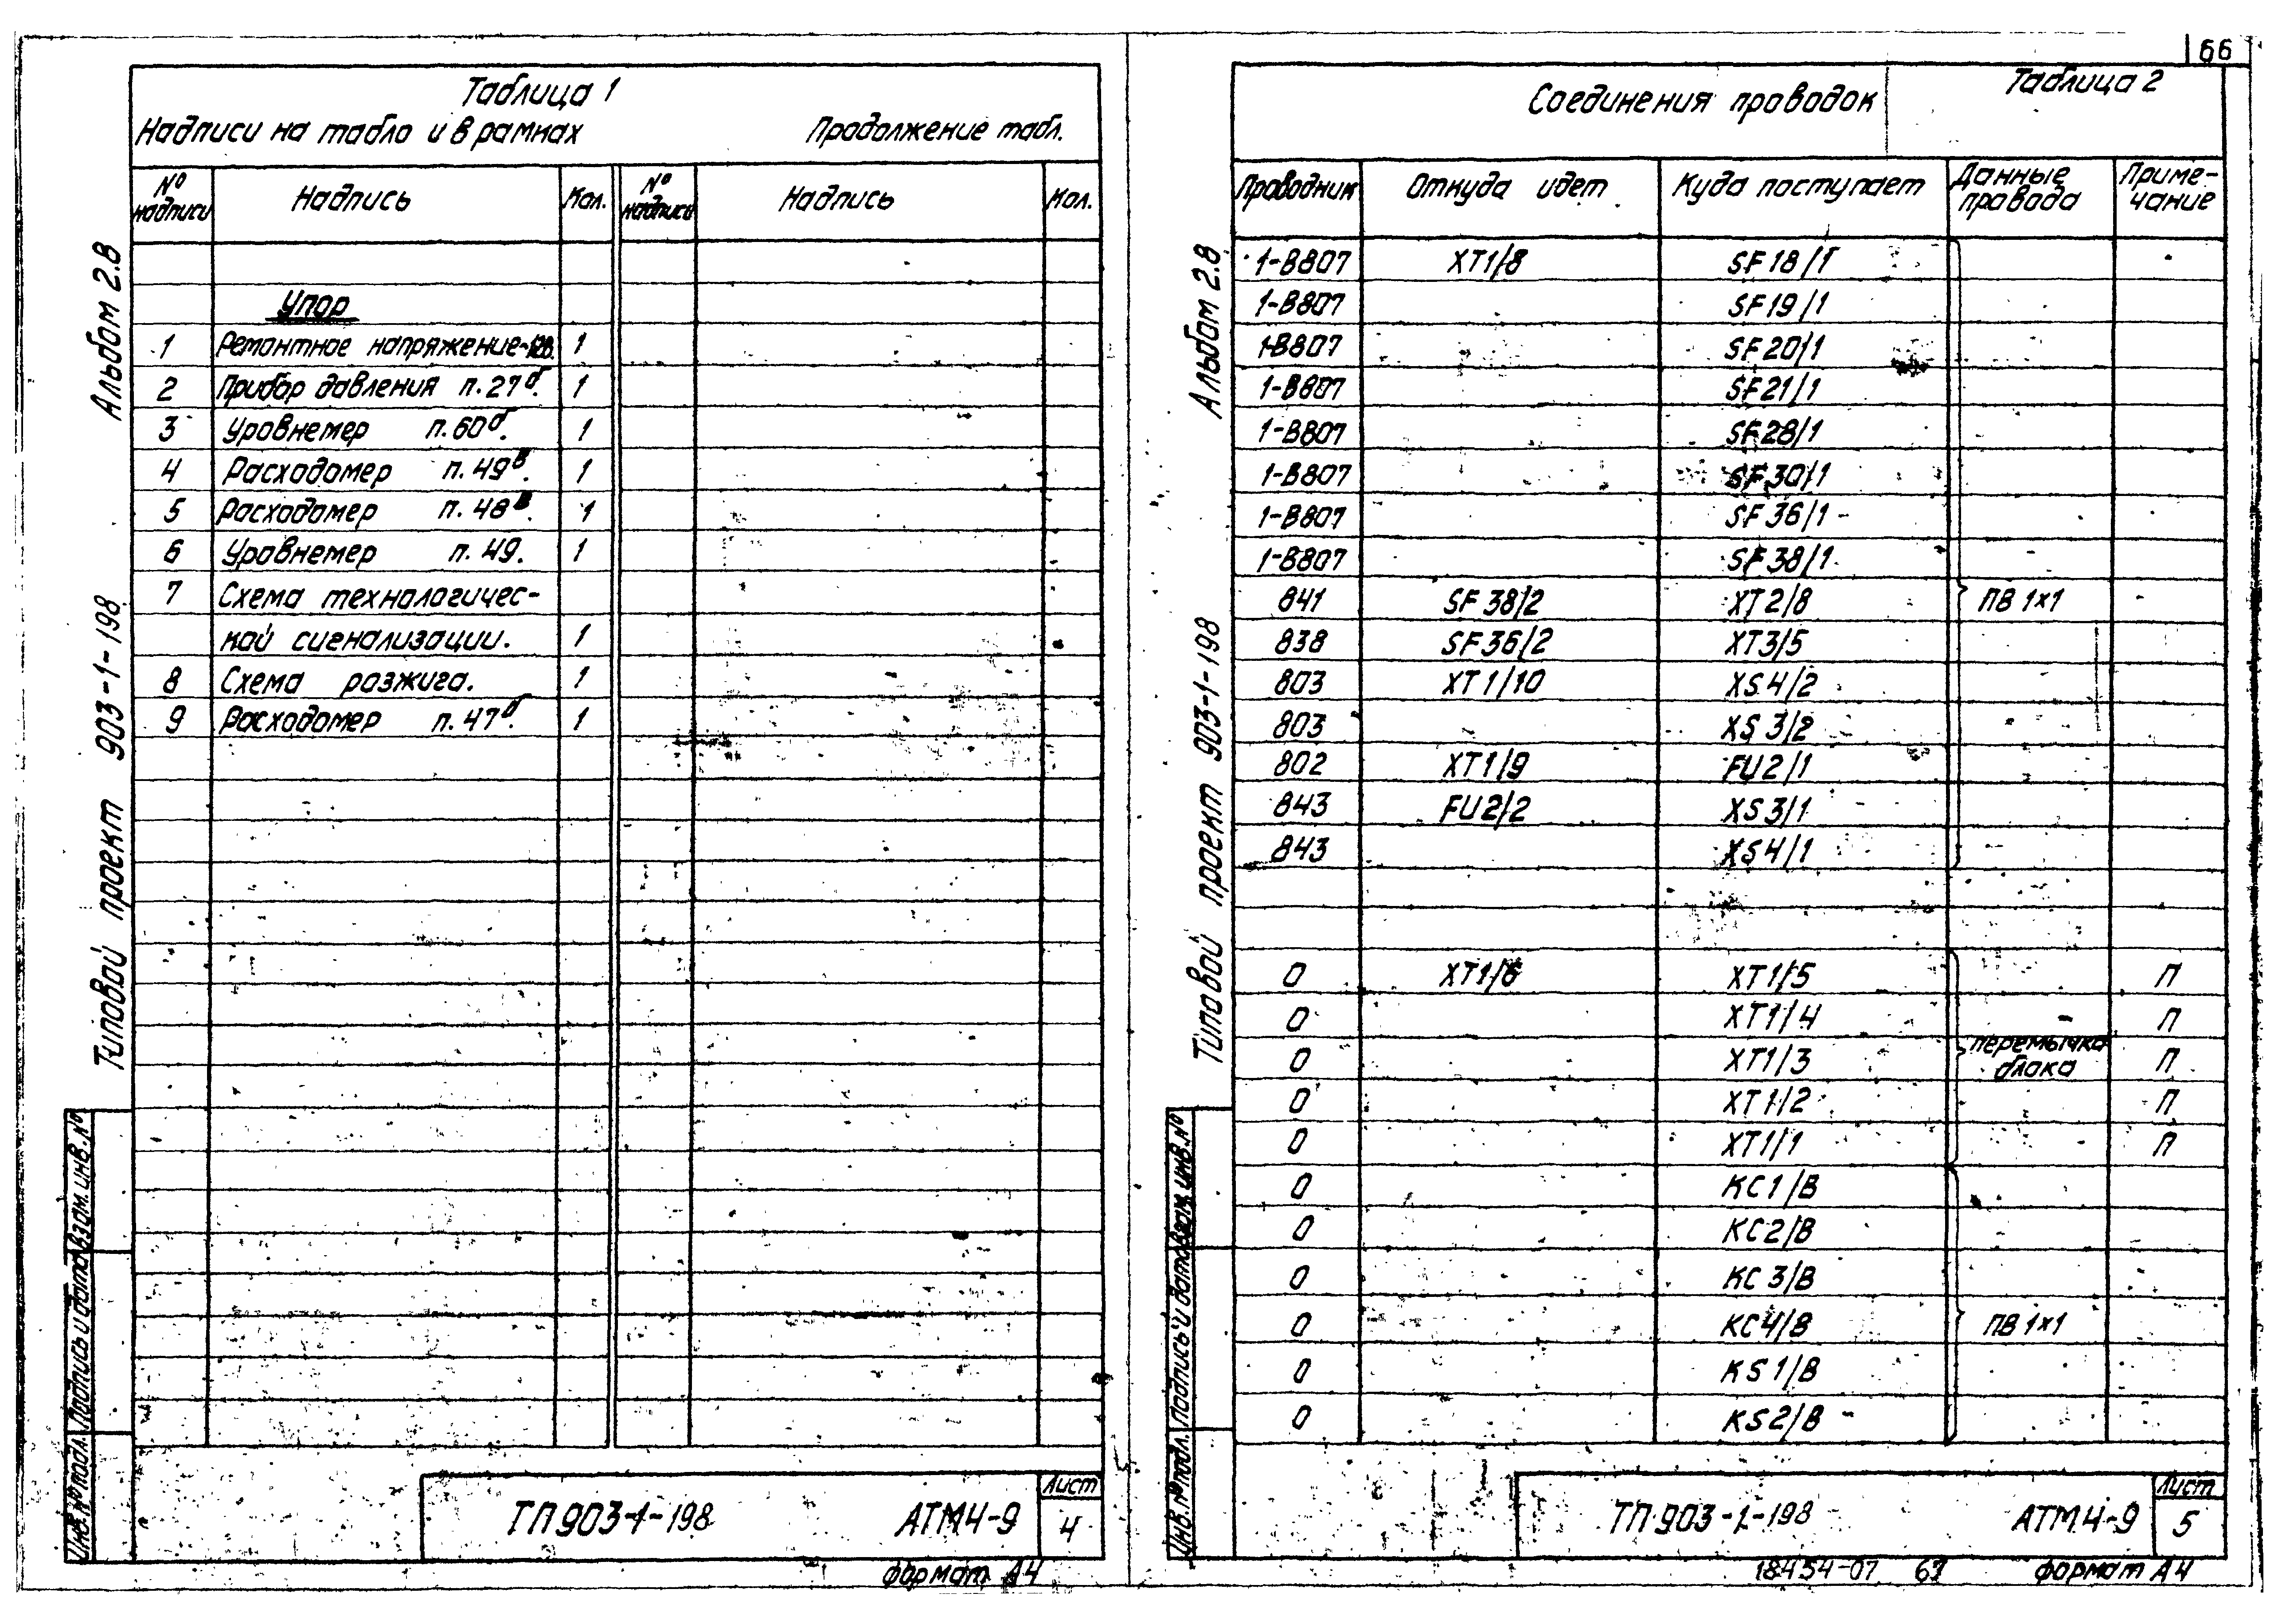 66
Таблица 1
Надписи на табло и в рамках Продолжение табл.
№ надписи Надпись Кол. № надписи Надпись Кол.
Упор
1 Ремонтное напряжение- 1
2 Прибор давления п.27б. 1
3 Уровнемер п.60б. 1
4 Расходомер п.49в. 1
5 Расходомер п.48в. 1
6 Уровнемер п.49. 1
7 Схема технологичес-
кой сигнализации. 1
8 Схема розжига. 1
9 Расходомер п.47б. 1
Альбом 2.8
Типовой проект 903-1-198
Взам.инв.№
Подпись и дата
Инв.№подл.
ТП903-1-198 АТМ4-9
Лист
4
формат А4
Таблица 2
Соединения проводок
Проводник Откуда идет Куда поступает Данные провода Приме-чание
1-В807 XT1/8 SF18/1
1-В807 SF19/1
1-В807 SF20/1
1-В807 SF21/1
1-В807 SF28/1
1-В807 SF30/1
1-В807 SF36/1
1-В807 SF38/1
841 SF38/2 XT2/8 ПВ 1×1
838 SF36/2 XT3/5
803 XT1/10 XS4/2
803 XS3/2
802 XT1/9 FU2/1
843 FU2/2 XS3/1
843 XS4/1
0 XT1/6 XT1/5 П
0 XT1/4 П
0 XT1/3 перемычка блока П
0 XT1/2 П
0 XT1/1 П
0 KC1/В
0 KC2/В
0 KC3/В
0 KC4/В ПВ 1×1
0 KS1/В
0 KS2/В
Альбом 2.8
Типовой проект 903-1-198
Взам.инв.№
Подпись и дата
Инв.№подл.
ТП903-1-198 АТМ4-9
Лист
5
18454-07 67 формат А4